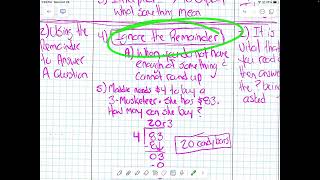 what something mean
2) Using the
Remainder
to Answer
A Question
4) Ignore the Remainder
A) When you do not have
enough of something
cannot round up
5) Maddie needs $4 to buy a
3-Musketeer. She has $83.
How many can she buy?
20r3
4 83
03
-0
20 candy bars
2) It is
vital that
you read
then answer
the ? being
asked